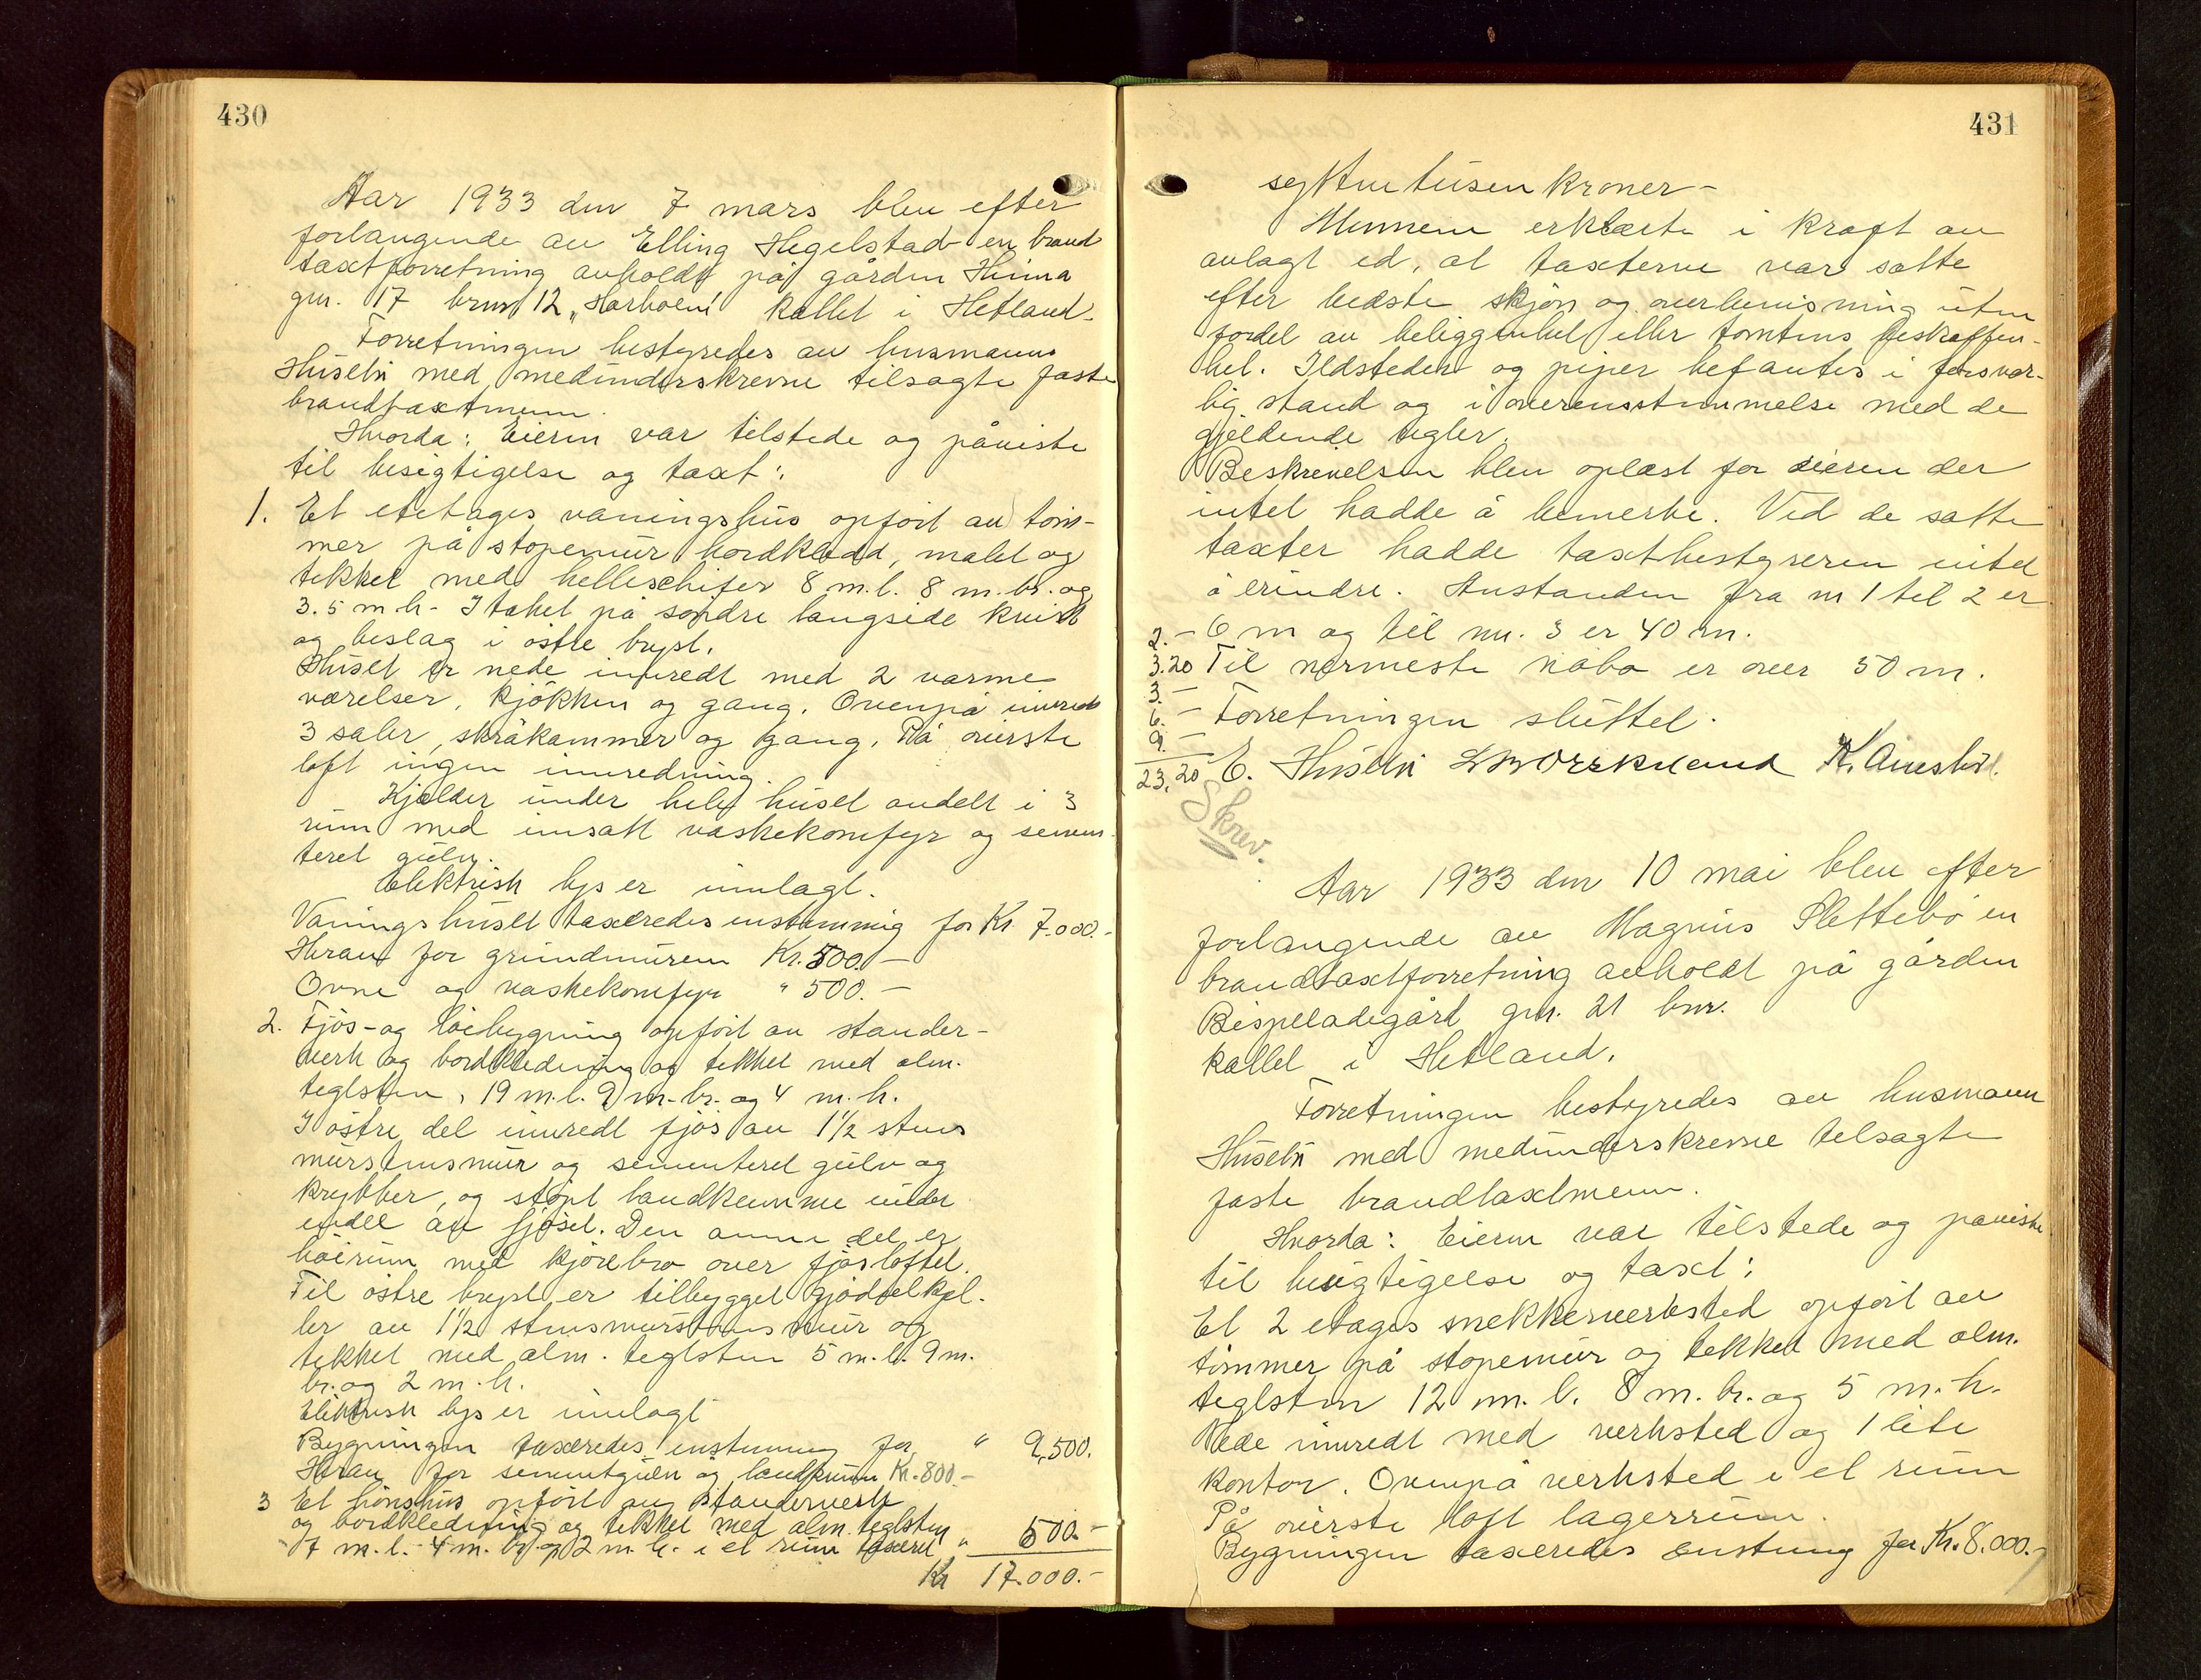 430
Aar 1933 den 7 mars blev efter
forlangende av Elling Hegelstad en brand
taxtforretning avholdt på gården Hinna
gnr. 17 brnr 12 „Harholen" kallet i Hetland.
Forretningen bestyredes av husmann
Husebø med medunderskrevne tilsagte faste
brandtaxtmenn.
Hvorda: Eieren var tilstede og påviste
til besigtigelse og taxt:
1. Et etetages våningshus opført av tøm-
mer på støpemur bordkledd, malet og
tekket med helleschifer 8 m.l. 8 m.br. og
3.5 m h- I taket på søndre langside kvist
og beslag i østre bryst.
Huset er nede innredt med 2 varme
værelser, kjøkken og gang. Ovenpå innredt
3 saler, skråkammer og gang. På øverste
loft ingen innredning.
Kjelder under hele huset avdelt i 3
rum med innsatt vaskekomfyr og semen-
teret gulv.
Elektrisk lys er innlagt.
Våningshuset taxeredes enstemmig for Kr. 7.000.-
Herav for grundmuren Kr. 500.-
Ovne og vaskekomfyr " 500.-
2. Fjøs- og løebygning opført av stender-
verk og bordkledning og tekket med alm.
teglsten, 19 m.l. 9 m.br. og 4 m.h.
I østre del innredt fjøs av 1 1/2 stens
murstensmur og sementeret gulv og
krybber, og støpt landkumme under
endel av fjøset. Den annen del er
høirum med kjørebro over fjøsloftet.
Til østre bryst er tilbygget gjødselkjel-
ler av 1 1/2 stensmurstensmur og
tekket med alm. teglsten 5 m.l. 9 m.
br. og 2 m.h.
Elektrisk lys er innlagt
Bygningen taxeredes enstemmig for " 9,500.
Herav for sementgulv og landkum Kr. 800.-
3 Et hønshus opført av stenderverk
og bordkledning og tekket med alm. teglsten
7 m.l. 4 m. br. og 2 m. h. i et rum taxeret " 500.-
Kr 17.000.-
431
sytten tusen kroner-
Mennene erklærte i kraft av
avlagt ed, at taxterne var satte
efter bedste skjøn og overbevisning uten
fordel av beliggenhet eller tomtens beskaffen-
het. Ildsteder og piper befantes i forsvar-
lig stand og i overensstemmelse med de
gjeldende regler.
Beskrivelsen blev oplæst for eieren der
intet hadde å bemerke. Ved de satte
taxter hadde taxtbestyreren intet
å erindre. Avstanden fra nr 1 til 2 er
2.- 6 m og til nr. 3 er 40 m.
3.20 Til nærmeste nabo er over 50 m.
3.-
6.- Forretningen sluttet.
9.-
23,20 E. Husebø K.
Skrev.
Aar 1933 den 10 mai blev efter
forlangende av Magnus Slettebø en
brandtaxtforretning avholdt på gården
Bispeladegård gnr. 21 bnr.
kallet i Hetland.
Forretningen bestyredes av husmann
Husebø med medunderskrevne tilsagte
faste brandtaxtmenn.
Hvorda: Eieren var tilstede og påviste
til besigtigelse og taxt:
Et 2 etages snekkerverksted opført av
tømmer på støpemur og tekket med alm.
teglsten 12 m. l. 8 m. br. og 5 m. h.
Nede innredt med verksted og 1 lite
kontor. Ovenpå verksted i et rum
På øverste loft lagerrum.
Bygningen taxeredes enstemmig for Kr. 8.000.-